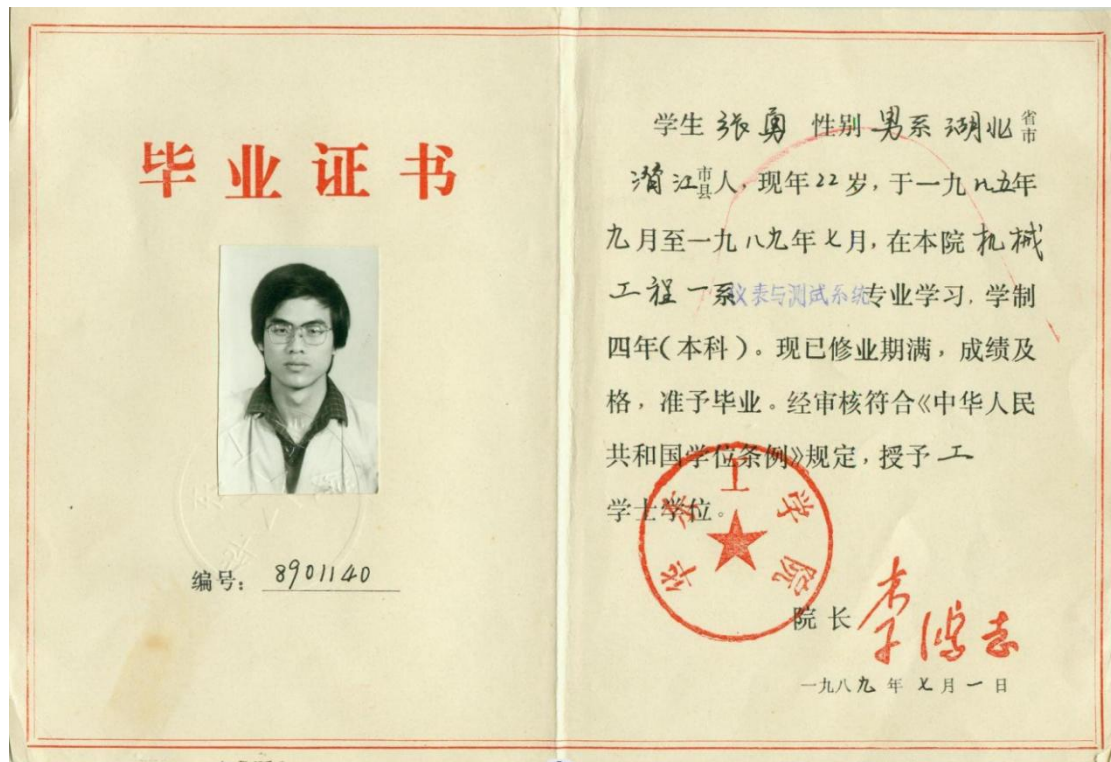 毕业证书
编号：8901140
学生 张勇 性别 男系 湖北 省市
潜江 市县 人，现年22岁，于一九八五年
九月至一九八九年七月，在本院 机械
工程一系 仪表与测试系统 专业学习，学制
四年（本科）。现已修业期满，成绩及
格，准予毕业。经审核符合《中华人民
共和国学位条例》规定，授予 工
学士学位。
华东工学院
院长 李鸿志
一九八九年七月一日